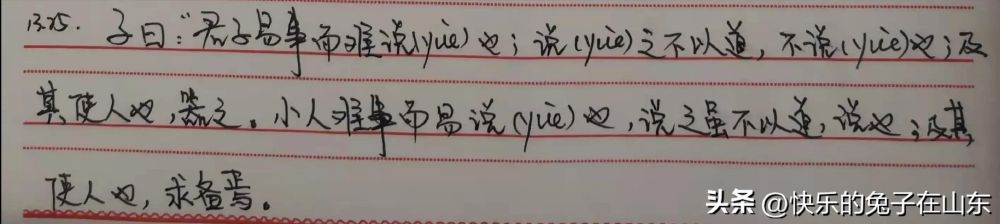 13.25. 子曰:“君子易事而难说(yuè)也;说(yuè)之不以道,不说(yuè)也;及
其使人也,器之。小人难事而易说(yuè)也,说之虽不以道,说也;及其
使人也,求备焉。
头条 @快乐的兔子在山东